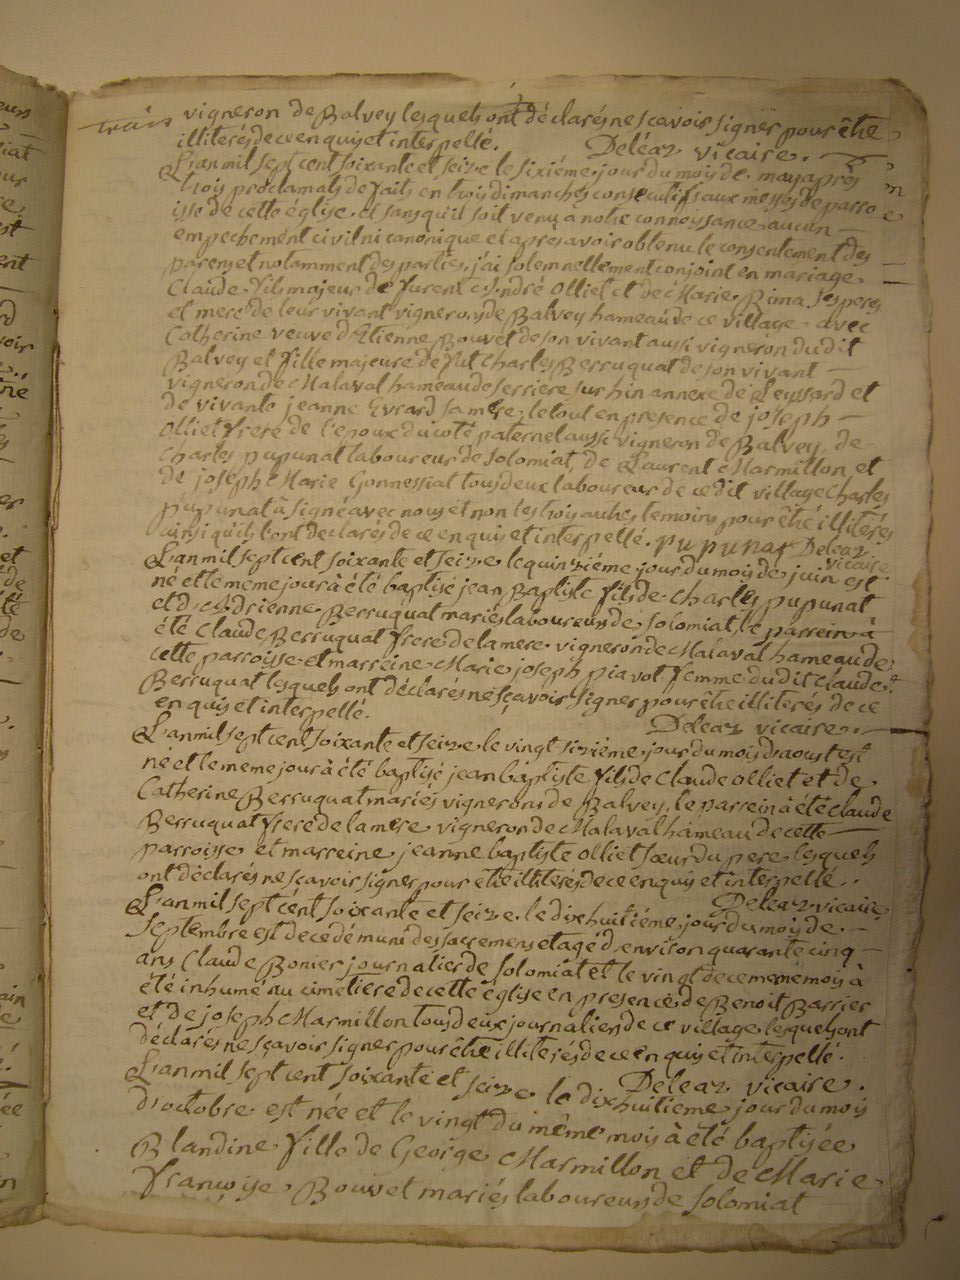 vigneron de Balvey lesquels ont déclarés ne scavoir signer pour être
illiterés de ce enquis et interpellé. Deléaz vicaire.
L'an mil sept cent soixante et seize le sixiéme jour du mois de may aprés
trois proclamats de faits en trois dimanches consecutifs aux messes de parro
isse de cette église, et sans qu'il soit venu a notre connoyssance aucun
empechement civil ni canonique et apres avoir obtenu le consentement des
parens et notamment des parties, j'ai solemnellement conjoint en mariage
Claude fils majeur de furent André olliet et de Marie Rima ses peres
et mere de leur vivant vignerons de Balvey hameau de ce village avec
Catherine veuve d'Etienne Bouvet de son vivant aussi vigneron dudit
Balvey et fille majeure de fut Charles Berruquat de son vivant
vigneron de Malaval hameau de serriere sur hin annexe de Leyssard et
de vivante jeanne Evrard sa mere, le tout en presence de joseph
olliet frere de l'epoux du coté paternel aussi vigneron de Balvey, de
Charles pupunat laboureur de solomiat, de Laurent Marmillon et
de joseph Marie Gonnessiat tous deux laboureur de ce dit village Charles
pupunat à signé avec nous et non les trois autres temoins pour être illiterés
ainsi qu'ils l'ont declarés de ce enquis et interpellé. pupunat Deleaz
vicaire
L'an mil sept cent soixante et seize le quinziéme jour du mois de juin est
né et le meme jour à été baptisé jean Baptiste fils de Charles pupunat
et d'Adrienne Berruquat mariés laboureurs de solomiat, le parrein à
été Claude Berruquat frere de la mere vigneron de Malaval hameau de
cette parroisse et marreine Marie joseph piavot femme du dit Claude
Berruquat lesquels ont déclarés ne sçavoir signer pour être illiterés de ce
enquis et interpellé. Deleaz vicaire.
L'an mil sept cent soixante et seize le vingt siziéme jour du mois d'aoust est
né et le meme jour à été baptisé jean baptiste fils de Claude olliet et de
Catherine Berruquat mariés vignerons de Balvey, le parrein à été Claude
Berruquat frere de la mere vigneron de Malaval hameau de cette
parroisse et marreine jeanne baptiste olliet sœur du pere lesquels
ont déclarés ne scavoir signer pour être illiterés de ce enquis et interpellé.
Deleaz vicaire.
L'an mil sept cent soixante et seize le dixhuitiéme jour du mois de
septembre est decedé muni des sacremens et agé d'environ quarante cinq
ans Claude Bonier journalier de solomiat et le vingt de ce meme mois à
été inhumé au cimetiere de cette église en presence de Benoit Barrier
et de joseph Marmillon tous deux journaliers de ce village lesquels ont
déclarés ne sçavoir signer pour être illiterés de ce enquis et interpellé.
Deleaz vicaire.
L'an mil sept cent soixante et seize le dixhuitieme jour du mois
d'octobre est née et le vingt du même mois à été baptisée
Blandine fille de George Marmillon et de Marie
françoise Bouvet mariés laboureurs de solomiat